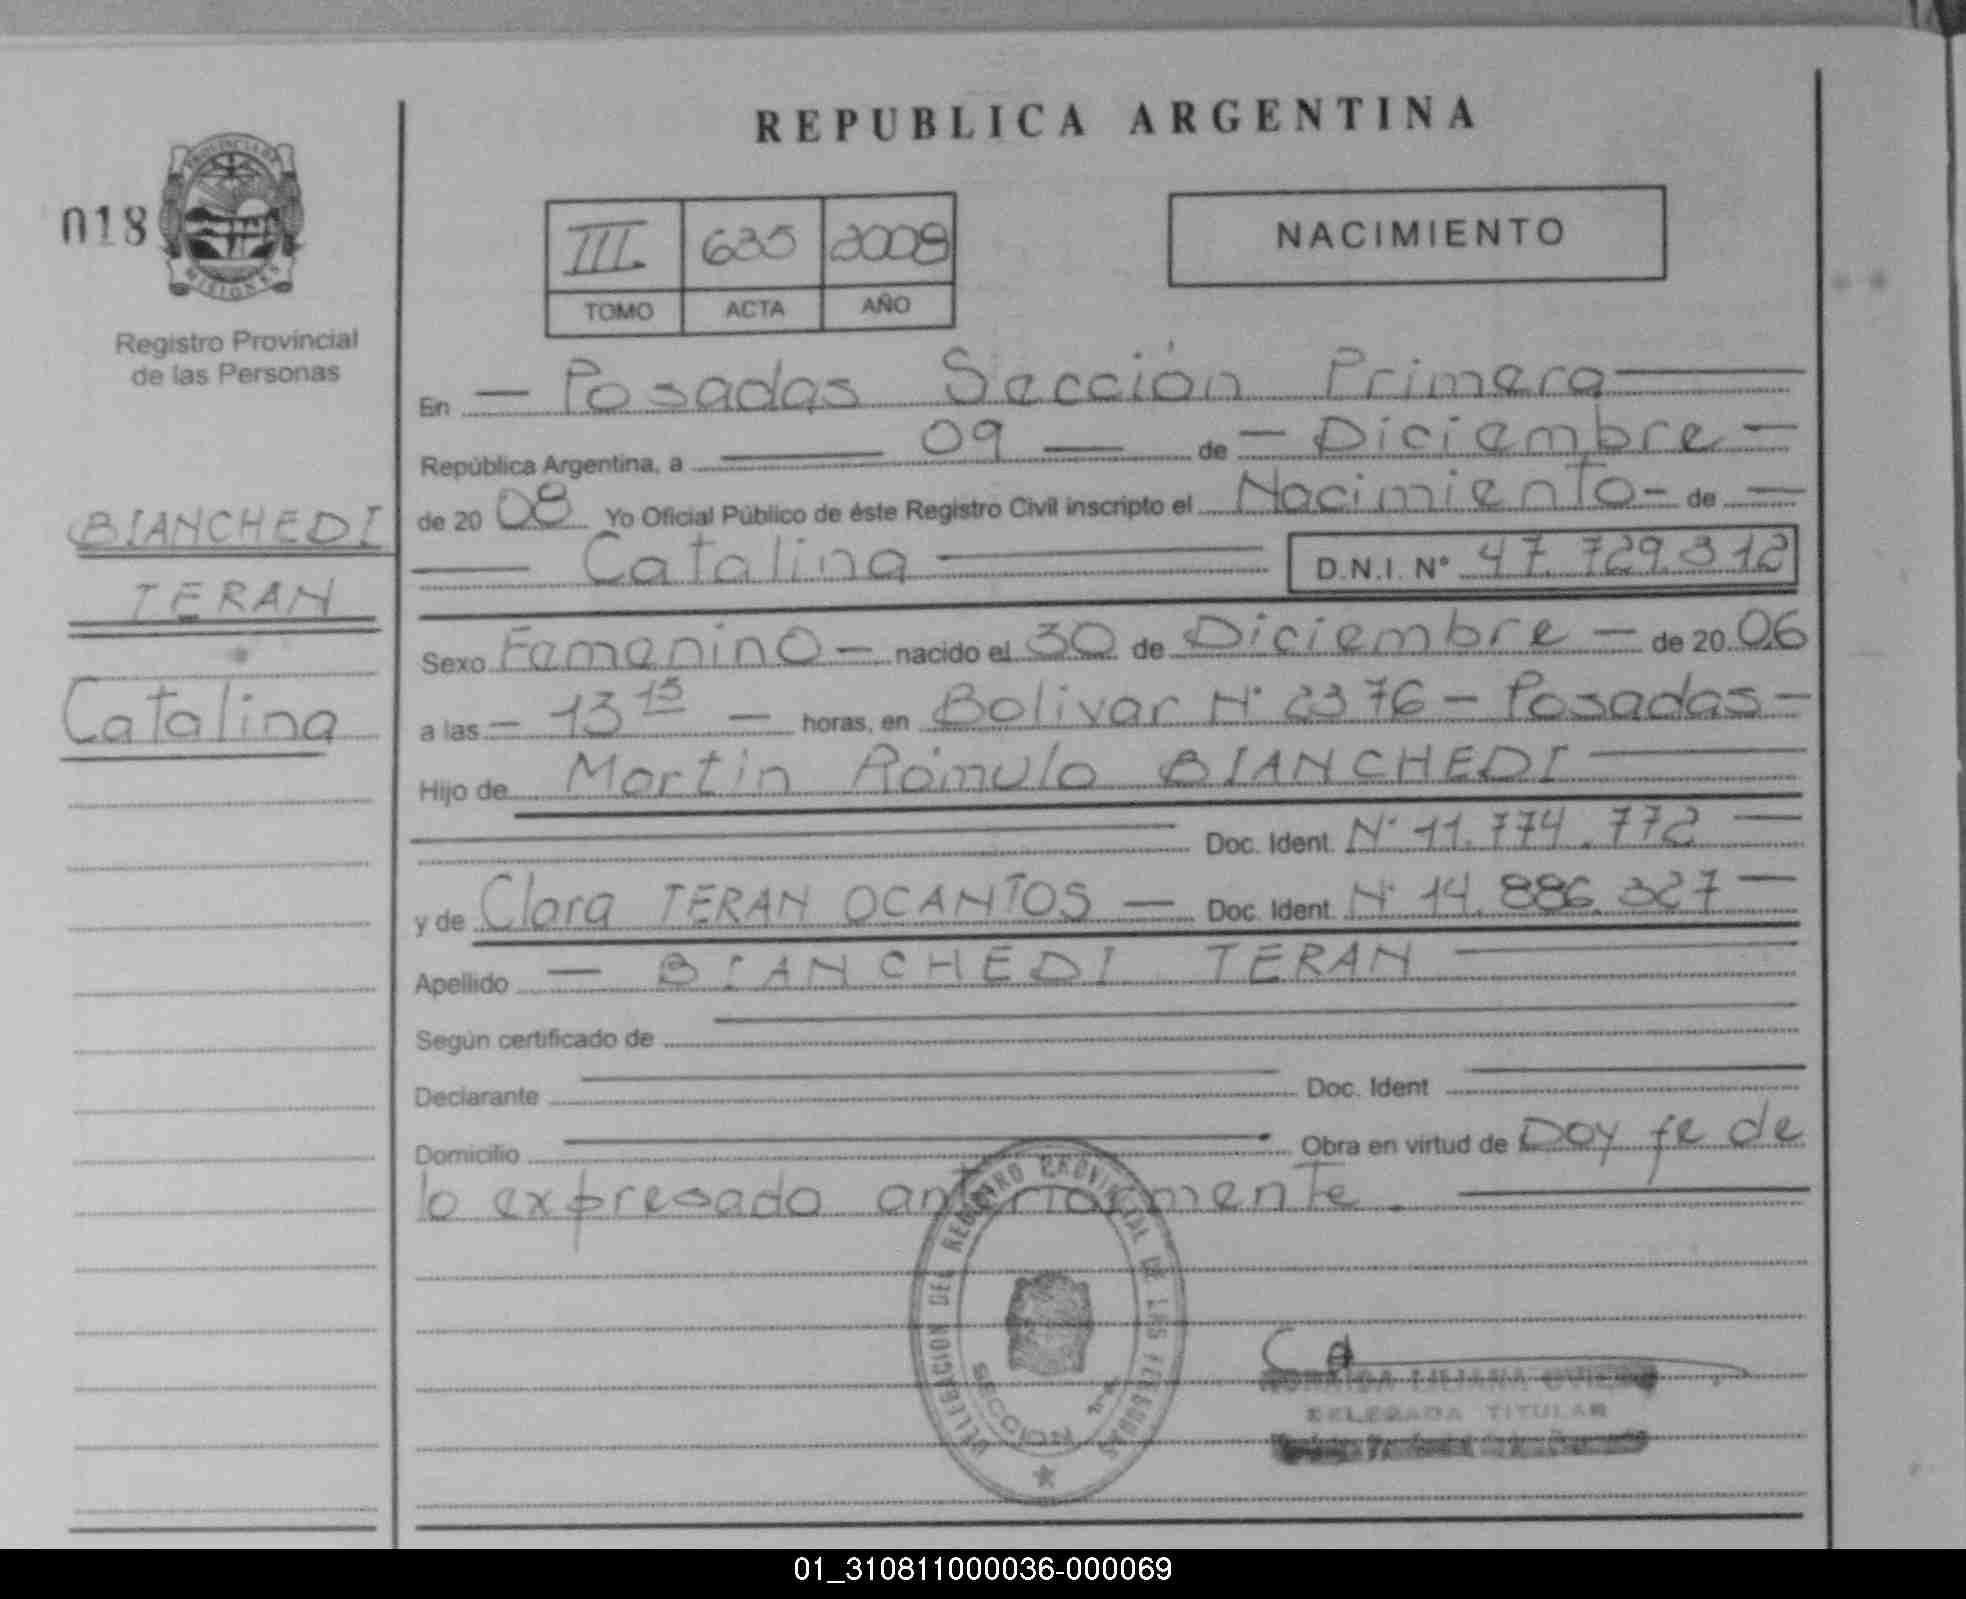 REPUBLICA ARGENTINA
018
PROVINCIA DE
MISIONES
Registro Provincial
de las Personas
III. 635 2008
TOMO ACTA AÑO
NACIMIENTO
En — Posadas Sección Primera
República Argentina, a 09 de — Diciembre —
de 20 08 Yo Oficial Público de éste Registro Civil inscripto el Nacimiento - de —
Catalina D.N.I. N° 47.729.312
BIANCHEDI
TERAN
Catalina
Sexo Femenino — nacido el 30 de Diciembre — de 20 06
a las — 13 15 — horas, en Bolivar N° 2376 - Posadas -
Hijo de Martin Rómulo BIANCHEDI
Doc. Ident. N° 11.774.772 —
y de Clara TERAN OCANTOS — Doc. Ident. N° 14.886.327 —
Apellido — BIANCHEDI TERAN
Según certificado de
Declarante Doc. Ident
Domicilio Obra en virtud de Doy fe de
lo expresado anteriormente.
DELEGACION DEL REGISTRO PROVINCIAL DE LAS PERSONAS
SECCION 1ra.
LILIANA
DELEGADA TITULAR
01_310811000036-000069